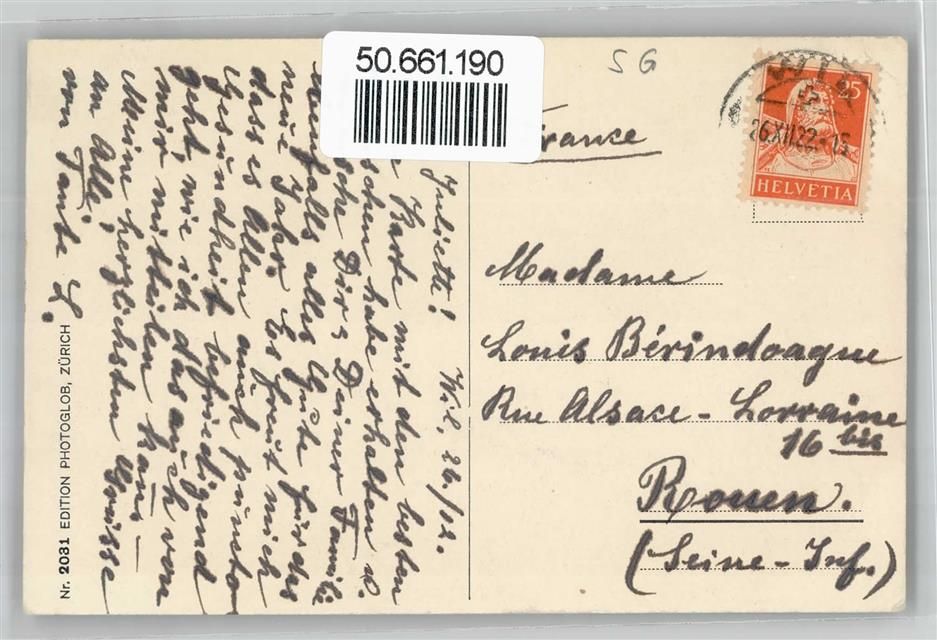 50.661.190
SG
France
WIL
26.XII.22.-15
25
HELVETIA
Madame
Louis Bérindoague
Rue Alsace-Lorraine
16 bis
Rouen.
(Seine-Inf.)
Wil, 26/12.
Juliette!
Karte mit den besten
habe erhalten u.
Dir & Deiner Famili
falls alles Gute für das
neue Jahr. Es freut mich
dass es Allen auch punkto
Gesundheit befriedigend
geht wie ich das auch von
mir mitteilen kann –
Meine herzlichsten Grüsse
an Alle,
von Tante L.
Nr. 2031 EDITION PHOTOGLOB, ZÜRICH